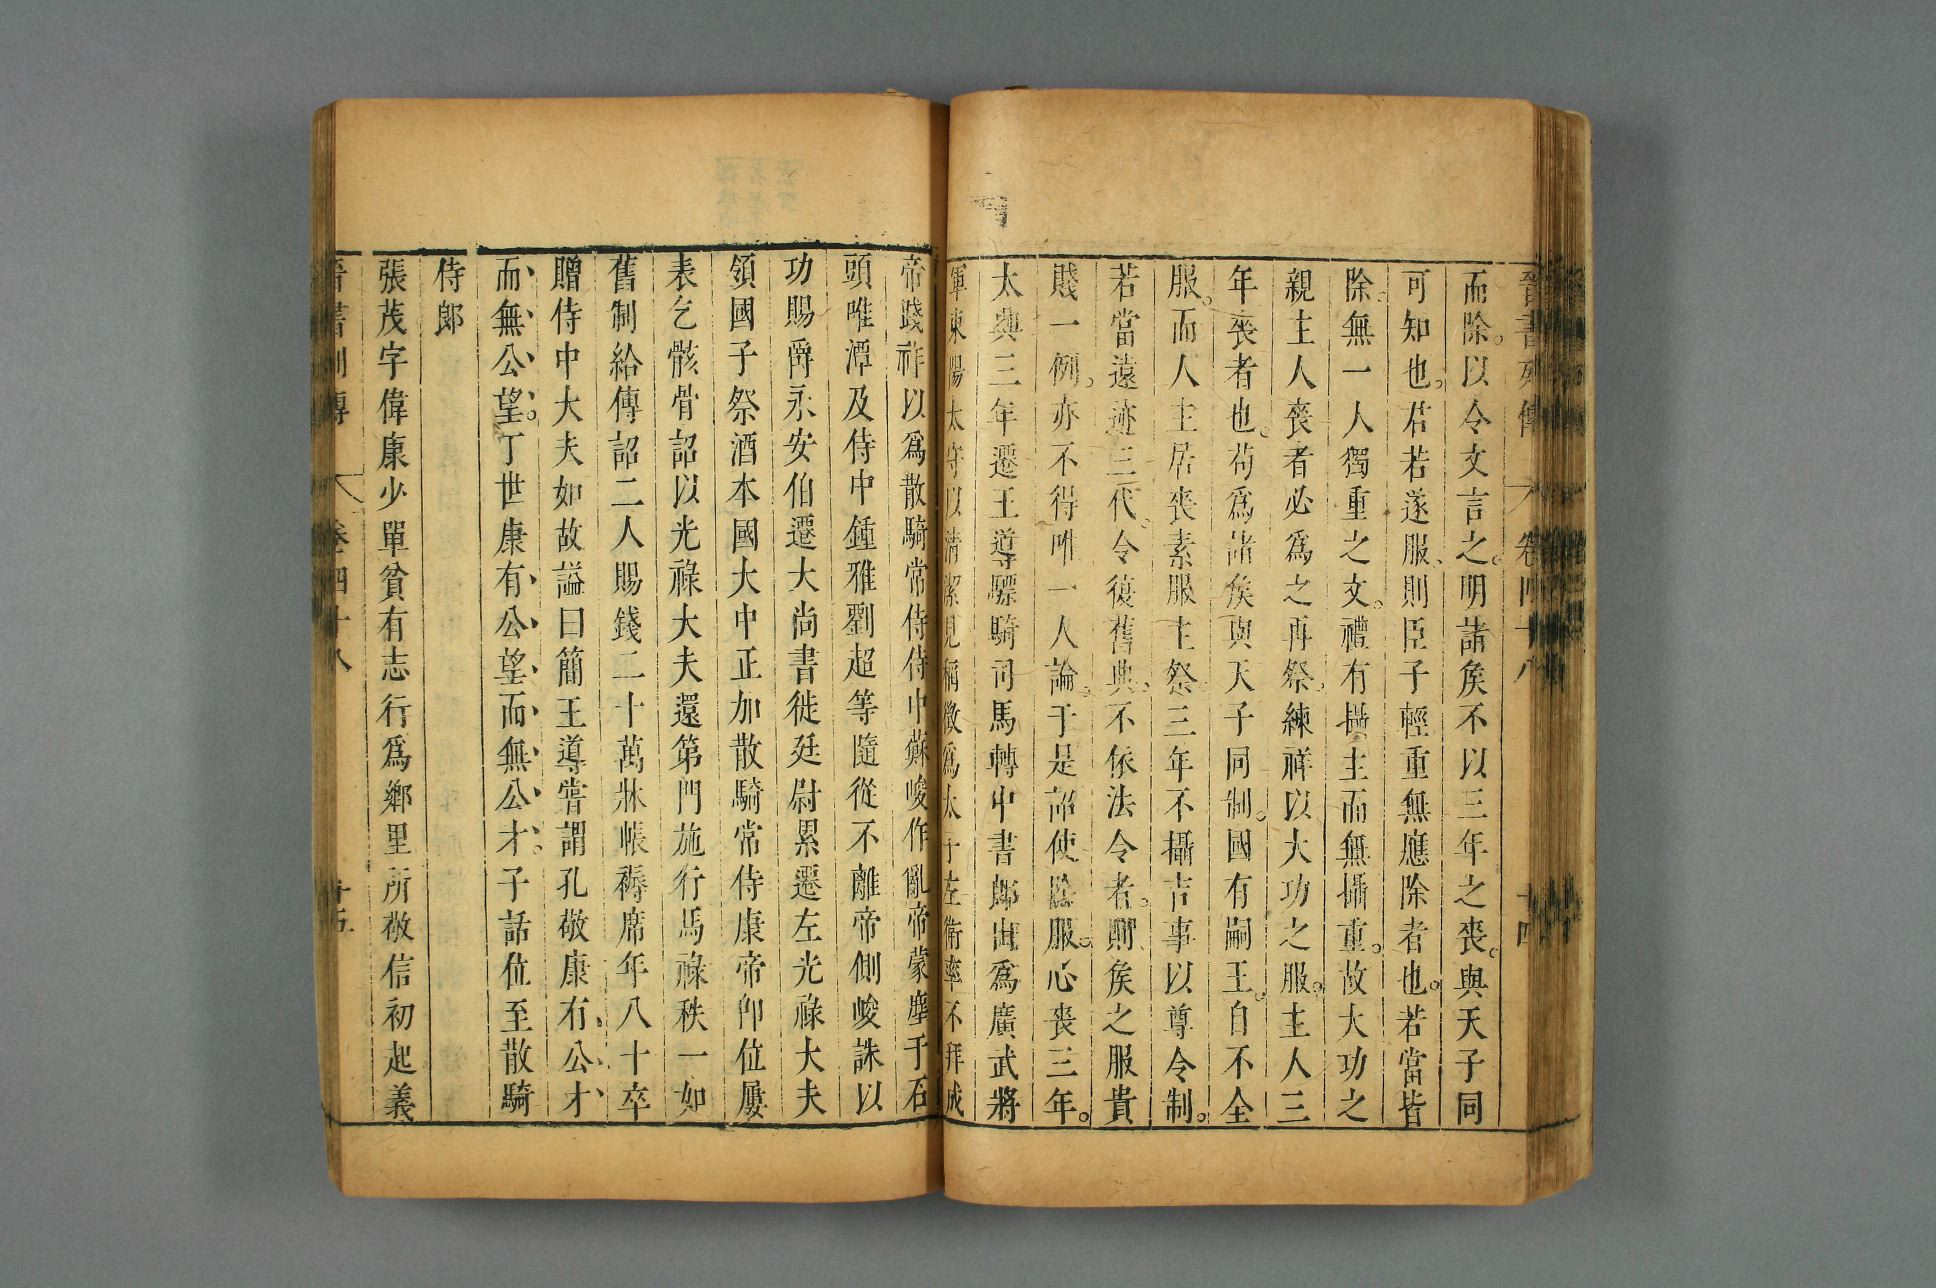 晉書列傳 卷四十八 十四
而除。以令文言之。明諸矦不以三年之喪。與天子同
可知也。君若遂服、則臣子輕重無應除者也。若當皆
除。無一人獨重之文。禮有攝主而無攝重。故大功之
親主人喪者必爲之再祭。練祥以大功之服。主人三
年喪者也。苟爲諸矦與天子同制。國有嗣王。自不全
服。而人主居喪素服主祭三年不攝吉事以尊令制。
若當遠迹三代。令復舊典。不依法令者。則矦之服貴
賤一例。亦不得唯一人論。于是詔使除服。心喪三年。
太興三年遷王導驃騎司馬轉中書郎出爲廣武將
軍東陽太守以清潔見稱徵爲太子左衛率不拜成
帝踐祚以爲散騎常侍侍中蘇峻作亂帝蒙塵于石
頭唯潭及侍中鍾雅劉超等隨從不離帝側峻誅以
功賜爵永安伯遷大尚書徙廷尉累遷左光祿大夫
領國子祭酒本國大中正加散騎常侍康帝卽位屢
表乞骸骨詔以光祿大夫還第門施行馬祿秩一如
舊制給傳詔二人賜錢二十萬牀帳褥席年八十卒
贈侍中大夫如故謚曰簡王導嘗謂孔敬康有公才
而無公望。丁世康有公望而無公才。子話位至散騎
侍郎
張茂字偉康少單貧有志行爲鄉里所敬信初起義
晉書列傳 卷四十八 十五